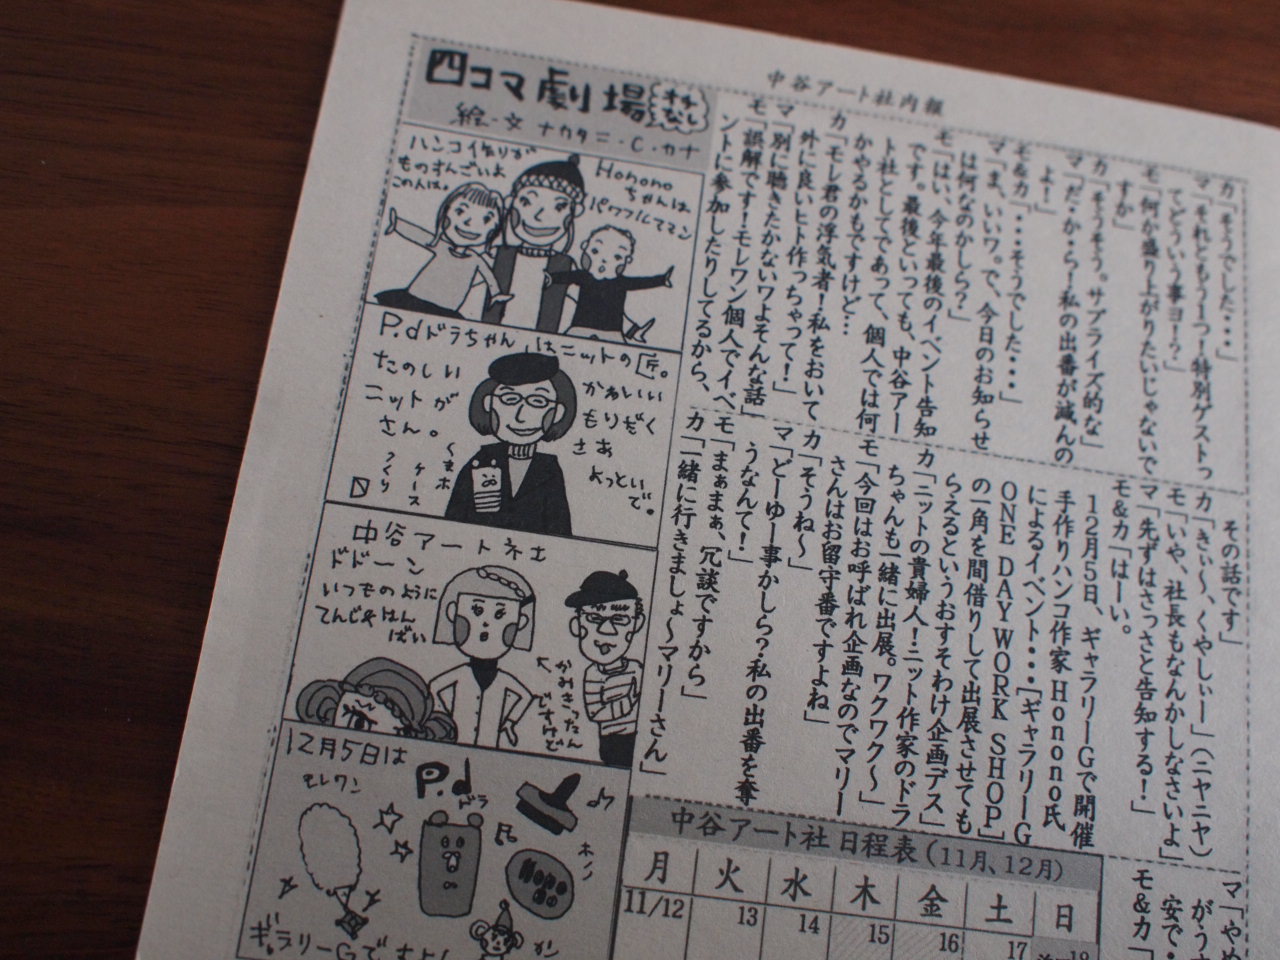 中谷アート社内報
四コマ劇場
オチなし
絵・文 ナカタニ・C・カナ
ハンコ作りが
ものすんごいよ
この人は。
Hononoちゃんは
パワフルママン
P.dドラちゃんはニットの匠。
たのしい
ニットが
さん。
かわいい
もりだく
さあ
よっといで。
くまホ
ケース
つくり
中谷アート社
ドドーン
いつものように
てんじ&はん
ばい
かみきったん
ですけど
12月5日は
モレワン
P.d
ドラ
ホノノ
Hono
no
カン
ギャラリーGで
カ「そうでした・・・」
マ「それともう一つ！特別ゲストっ
てどういう事ヨ！？」
モ「何か盛り上がりたいじゃないで
すか」
カ「そうそう。サプライズ的な」
マ「だ・か・ら！私の出番が減んの
よ！」
モ&カ「・・・そうでした・・・」
マ「ま、いいワ。で、今日のお知らせ
は何なのかしら？」
モ「はい、今年最後のイベント告知
です。最後といっても、中谷アー
ト社としてであって、個人では何
かやるかもですけど…
カ「モレ君の浮気者！私をおいて
外に良いヒト作っちゃって！」
マ「別に聴きたかないワよそんな話」
モ「誤解です！モレワン個人でイベ
ントに参加したりしてるから、
その話です」
カ「きぃ～、くやしぃー」（ニヤニヤ）
モ「いや、社長もなんかしなさいよ」
マ「先ずはさっさと告知する！」
モ&カ「はーい。
12月5日、ギャラリーGで開催
手作りハンコ作家Honono氏
によるイベント・・・［ギャラリーG
ONE DAY WORK SHOP］
の一角を間借りして出展させても
らえるというおすそわけ企画デス」
カ「ニットの貴婦人！ニット作家のドラ
ちゃんも一緒に出展。ワクワク～」
モ「今回はお呼ばれ企画なのでマリー
さんはお留守番ですよね」
カ「そうね～」
マ「どーゆー事かしら？私の出番を奪
うなんて！」
モ「まぁまぁ、冗談ですから」
カ「一緒に行きましょ～マリーさん」
中谷アート社 日程表（11月、12月）
月 火 水 木 金 土 日
11/12 13 14 15 16 17 18
マ「やめ
がうす
安で・
モ&カ「